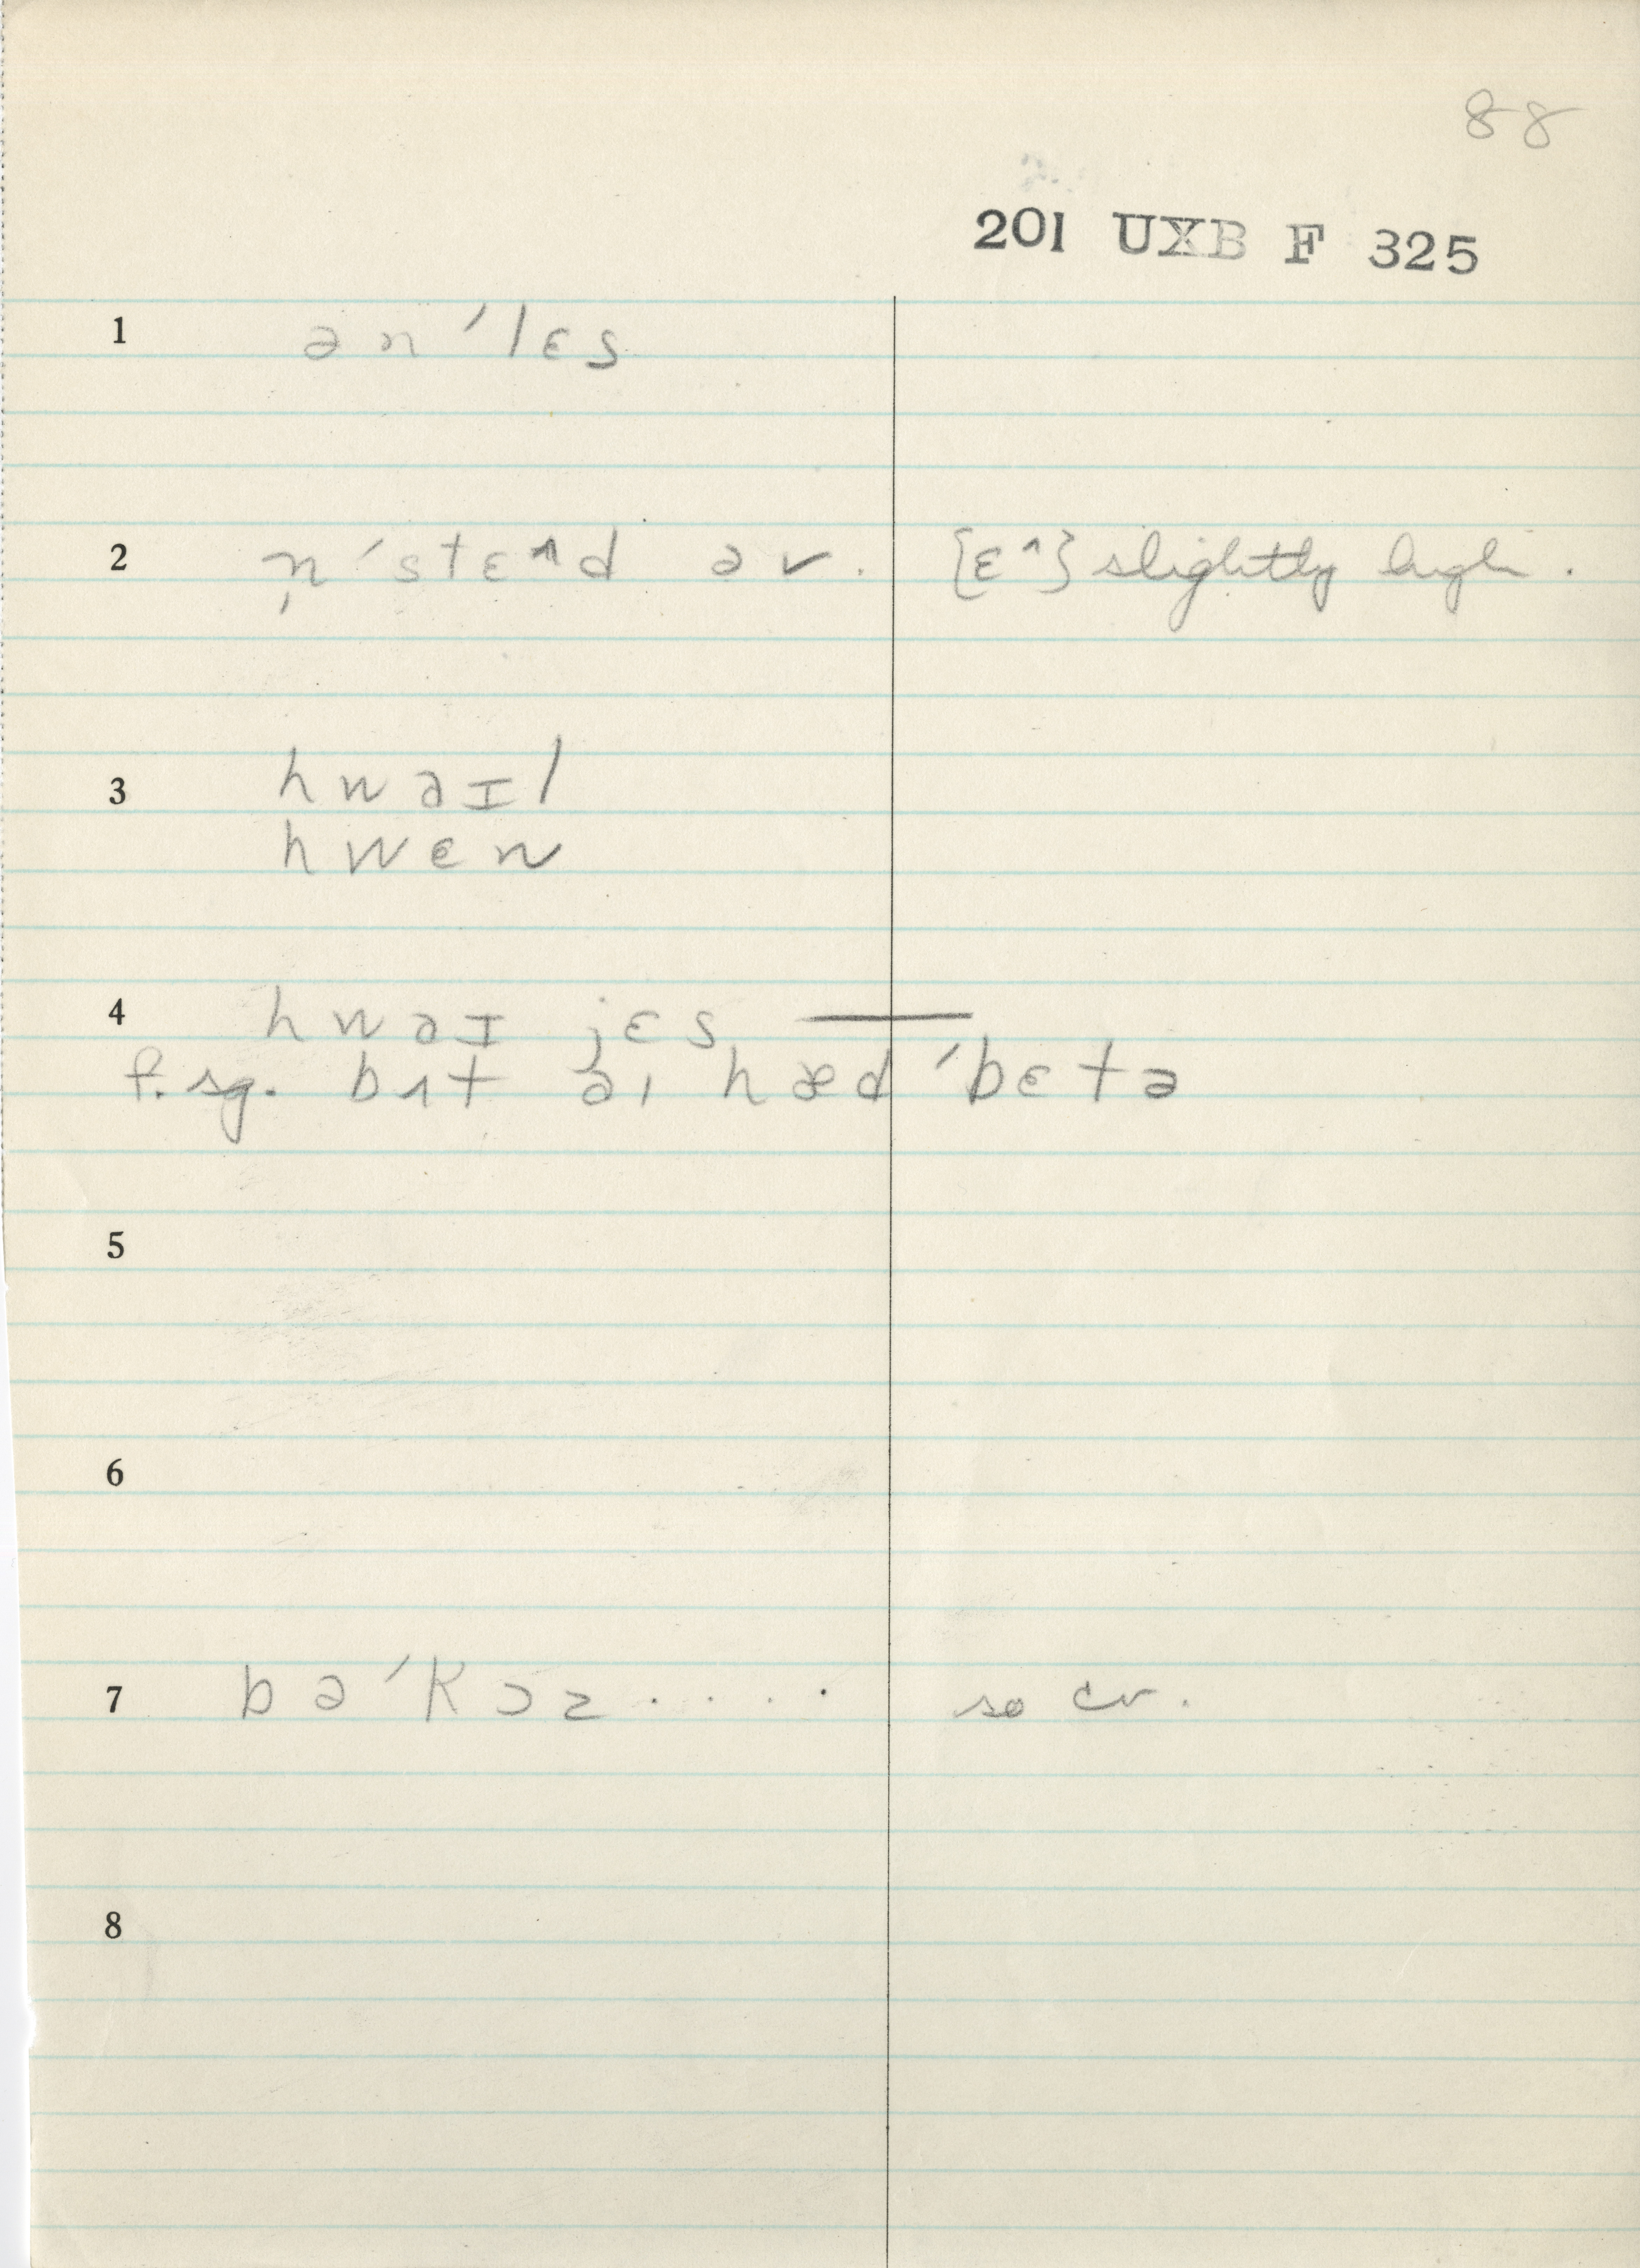 88
201 UXB F 325
1 ən ˈlɛs
2 n̩ ˈstɛ^d əv. [ɛ^] slightly high.
3 hwəɪl
hwen
4 hwəɪ jɛs —
f. sg. bʌt əɪ hæd ˈbɛtə
5
6
7 bəˈkɔz . . . . so cv.
8